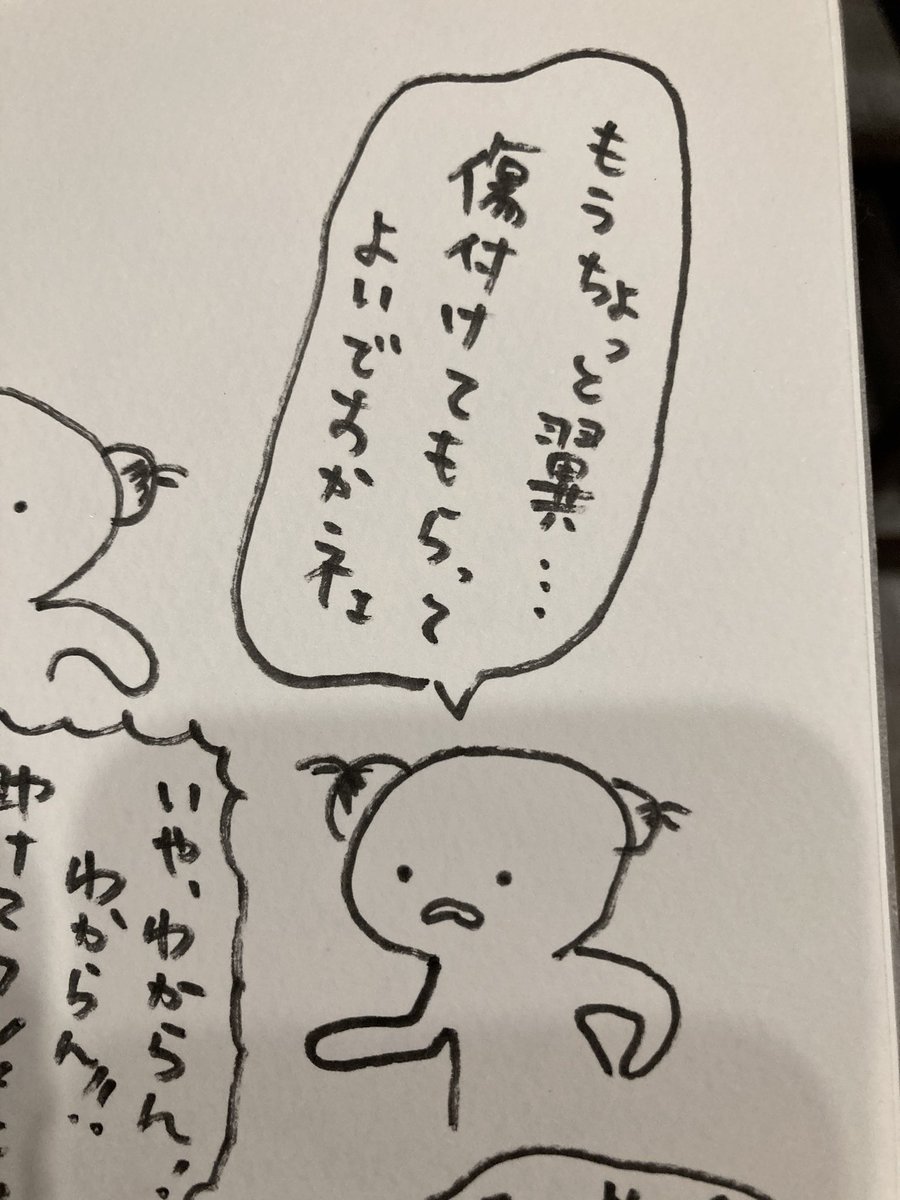 もうちょっと翼…
傷付けてもらって
よいでおかネょ
いや、わからん…
わからん!!